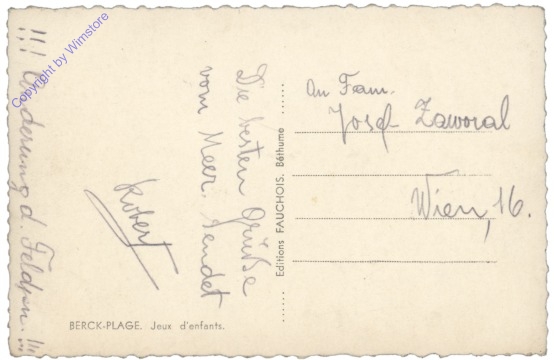 !!! Änderung d. Feldpn. !!!
Die besten Grüße
vom Meer, sendet
Robert
An Fam.
Josef Zaworal
Wien, 16.
Editions FAUCHOIS. Béthume
BERCK-PLAGE. Jeux d'enfants.
Copyright by Wimstore